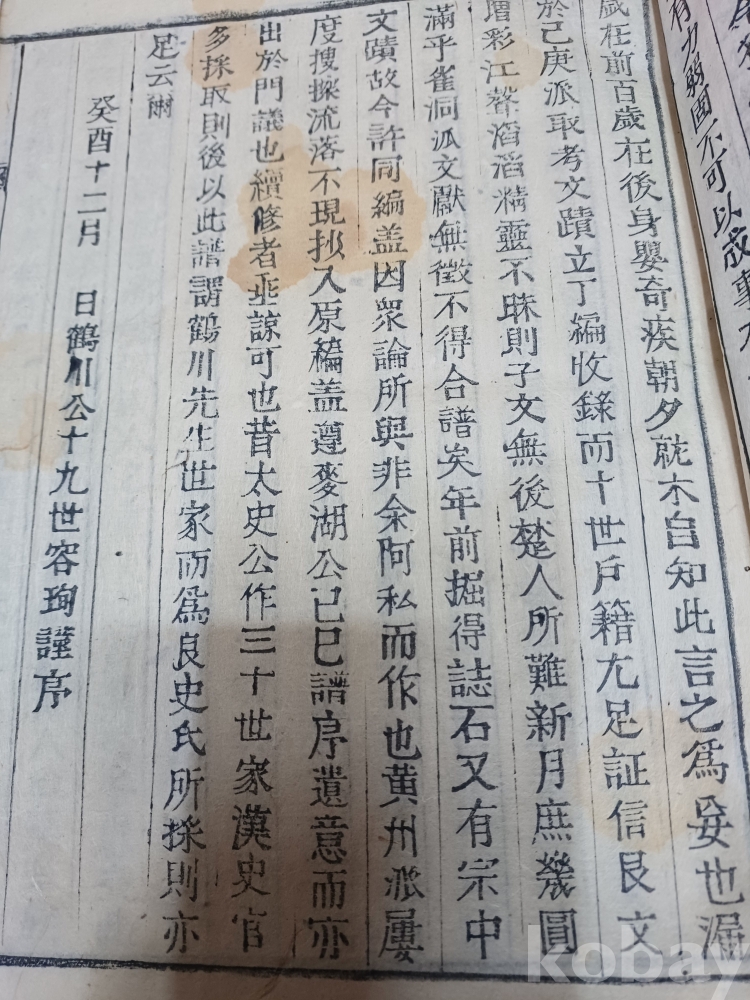 有力弱固不可以成事
歲在前百歲在後身嬰奇疾朝夕就木自知此言之爲妄也漏
於己庚派取考文蹟立丁編收錄而十世戶籍尤足証信艮文
増彩江聲滔滔精靈不昧則子文無後楚人所難新月庶幾圓
滿乎雀洞派文獻無徵不得合譜矣年前掘得誌石又有宗中
文蹟故今許同編盖因衆論所與非余阿私而作也黄州派屢
度搜探流落不現抄入原編盖遵麥湖公己巳譜序遺意而亦
出於門議也續修者亟諒可也昔太史公作三十世家漢史官
多採取則後以此譜謂鶴川先生世家而爲良史氏所採則亦
足云爾
癸酉十二月 日鶴川公十九世容珣謹序
kobay